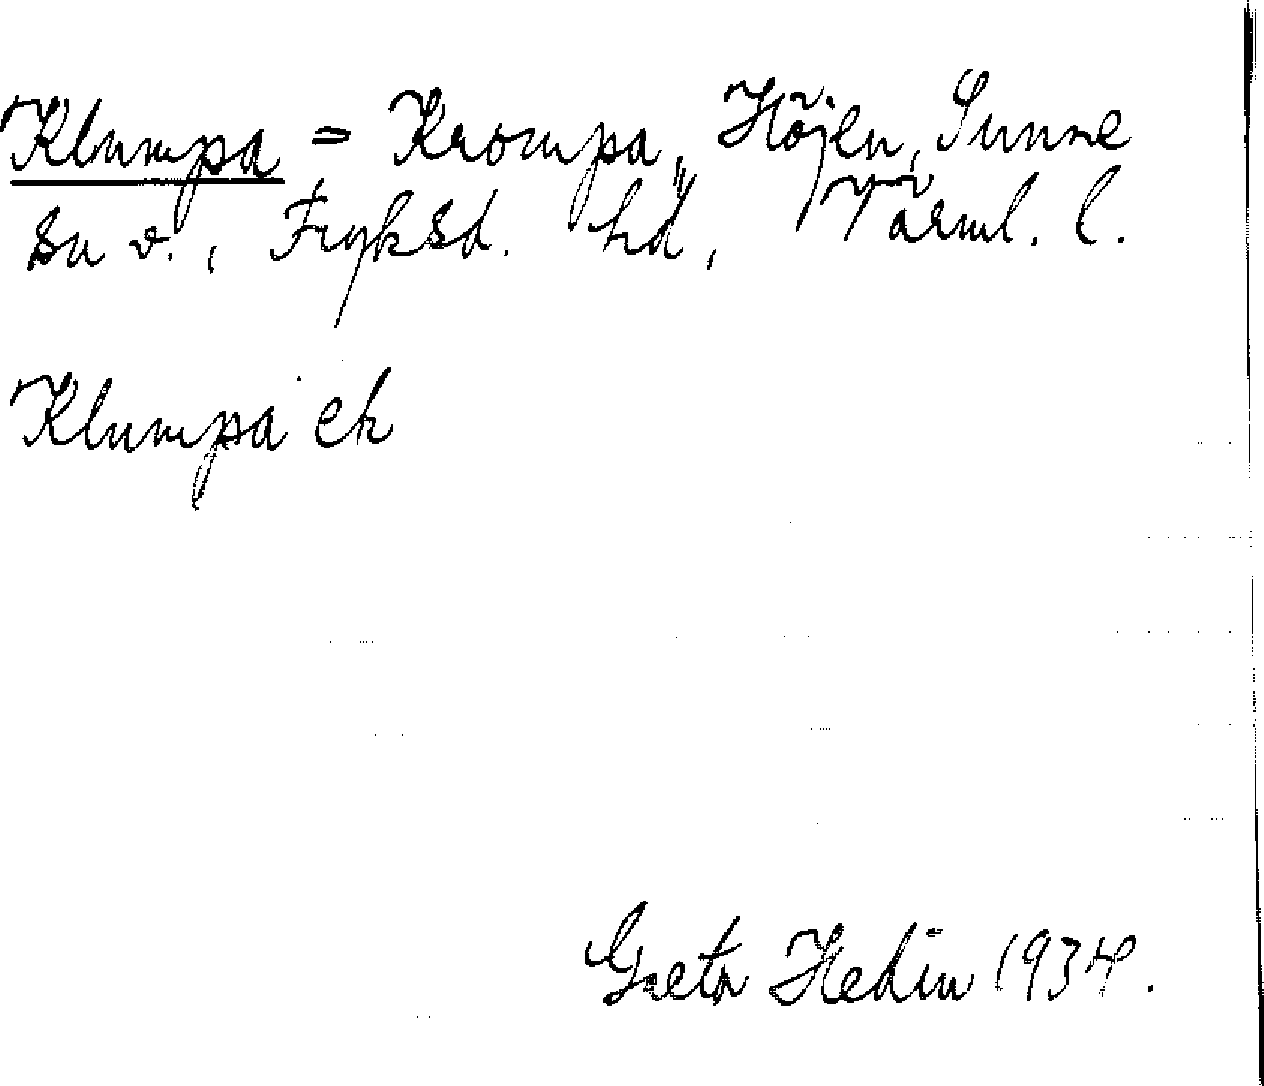 Klumpa = Krompa, Höjen, Sunne
sn v., Fryksd. hd, Värml. l.
Klumpa ek
Greta Hedin 1934.